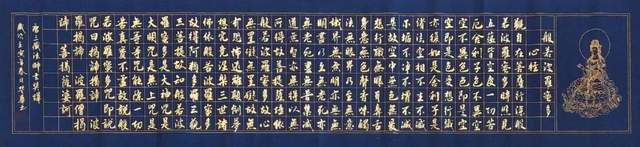 般若波羅蜜多
心經
觀自在菩薩行深般
若波羅蜜多時照見
五蘊皆空度一切苦
厄舍利子色不異空
空不異色色即是空
空即是色受想行識
亦復如是舍利子是
諸法空相不生不滅
不垢不淨不增不減
是故空中無色無受
想行識無眼耳鼻舌
身意無色聲香味觸
法無眼界乃至無意
識界無無明亦無無
明盡乃至無老死亦
無老死盡無苦集滅
道無智亦無得以無
所得故菩提薩埵依
般若波羅蜜多故心
無罣礙無罣礙故無
有恐怖遠離顛倒夢
想究竟涅槃三世諸
佛依般若波羅蜜多
故得阿耨多羅三藐
三菩提故知般若波
羅蜜多是大神咒是
大明咒是無上咒是
無等等咒能除一切
苦真實不虛故說般
若波羅蜜多咒即說
咒曰揭諦揭諦 波
羅揭諦 波羅僧揭
諦 菩提薩婆訶
唐三藏法師玄奘譯
歲次